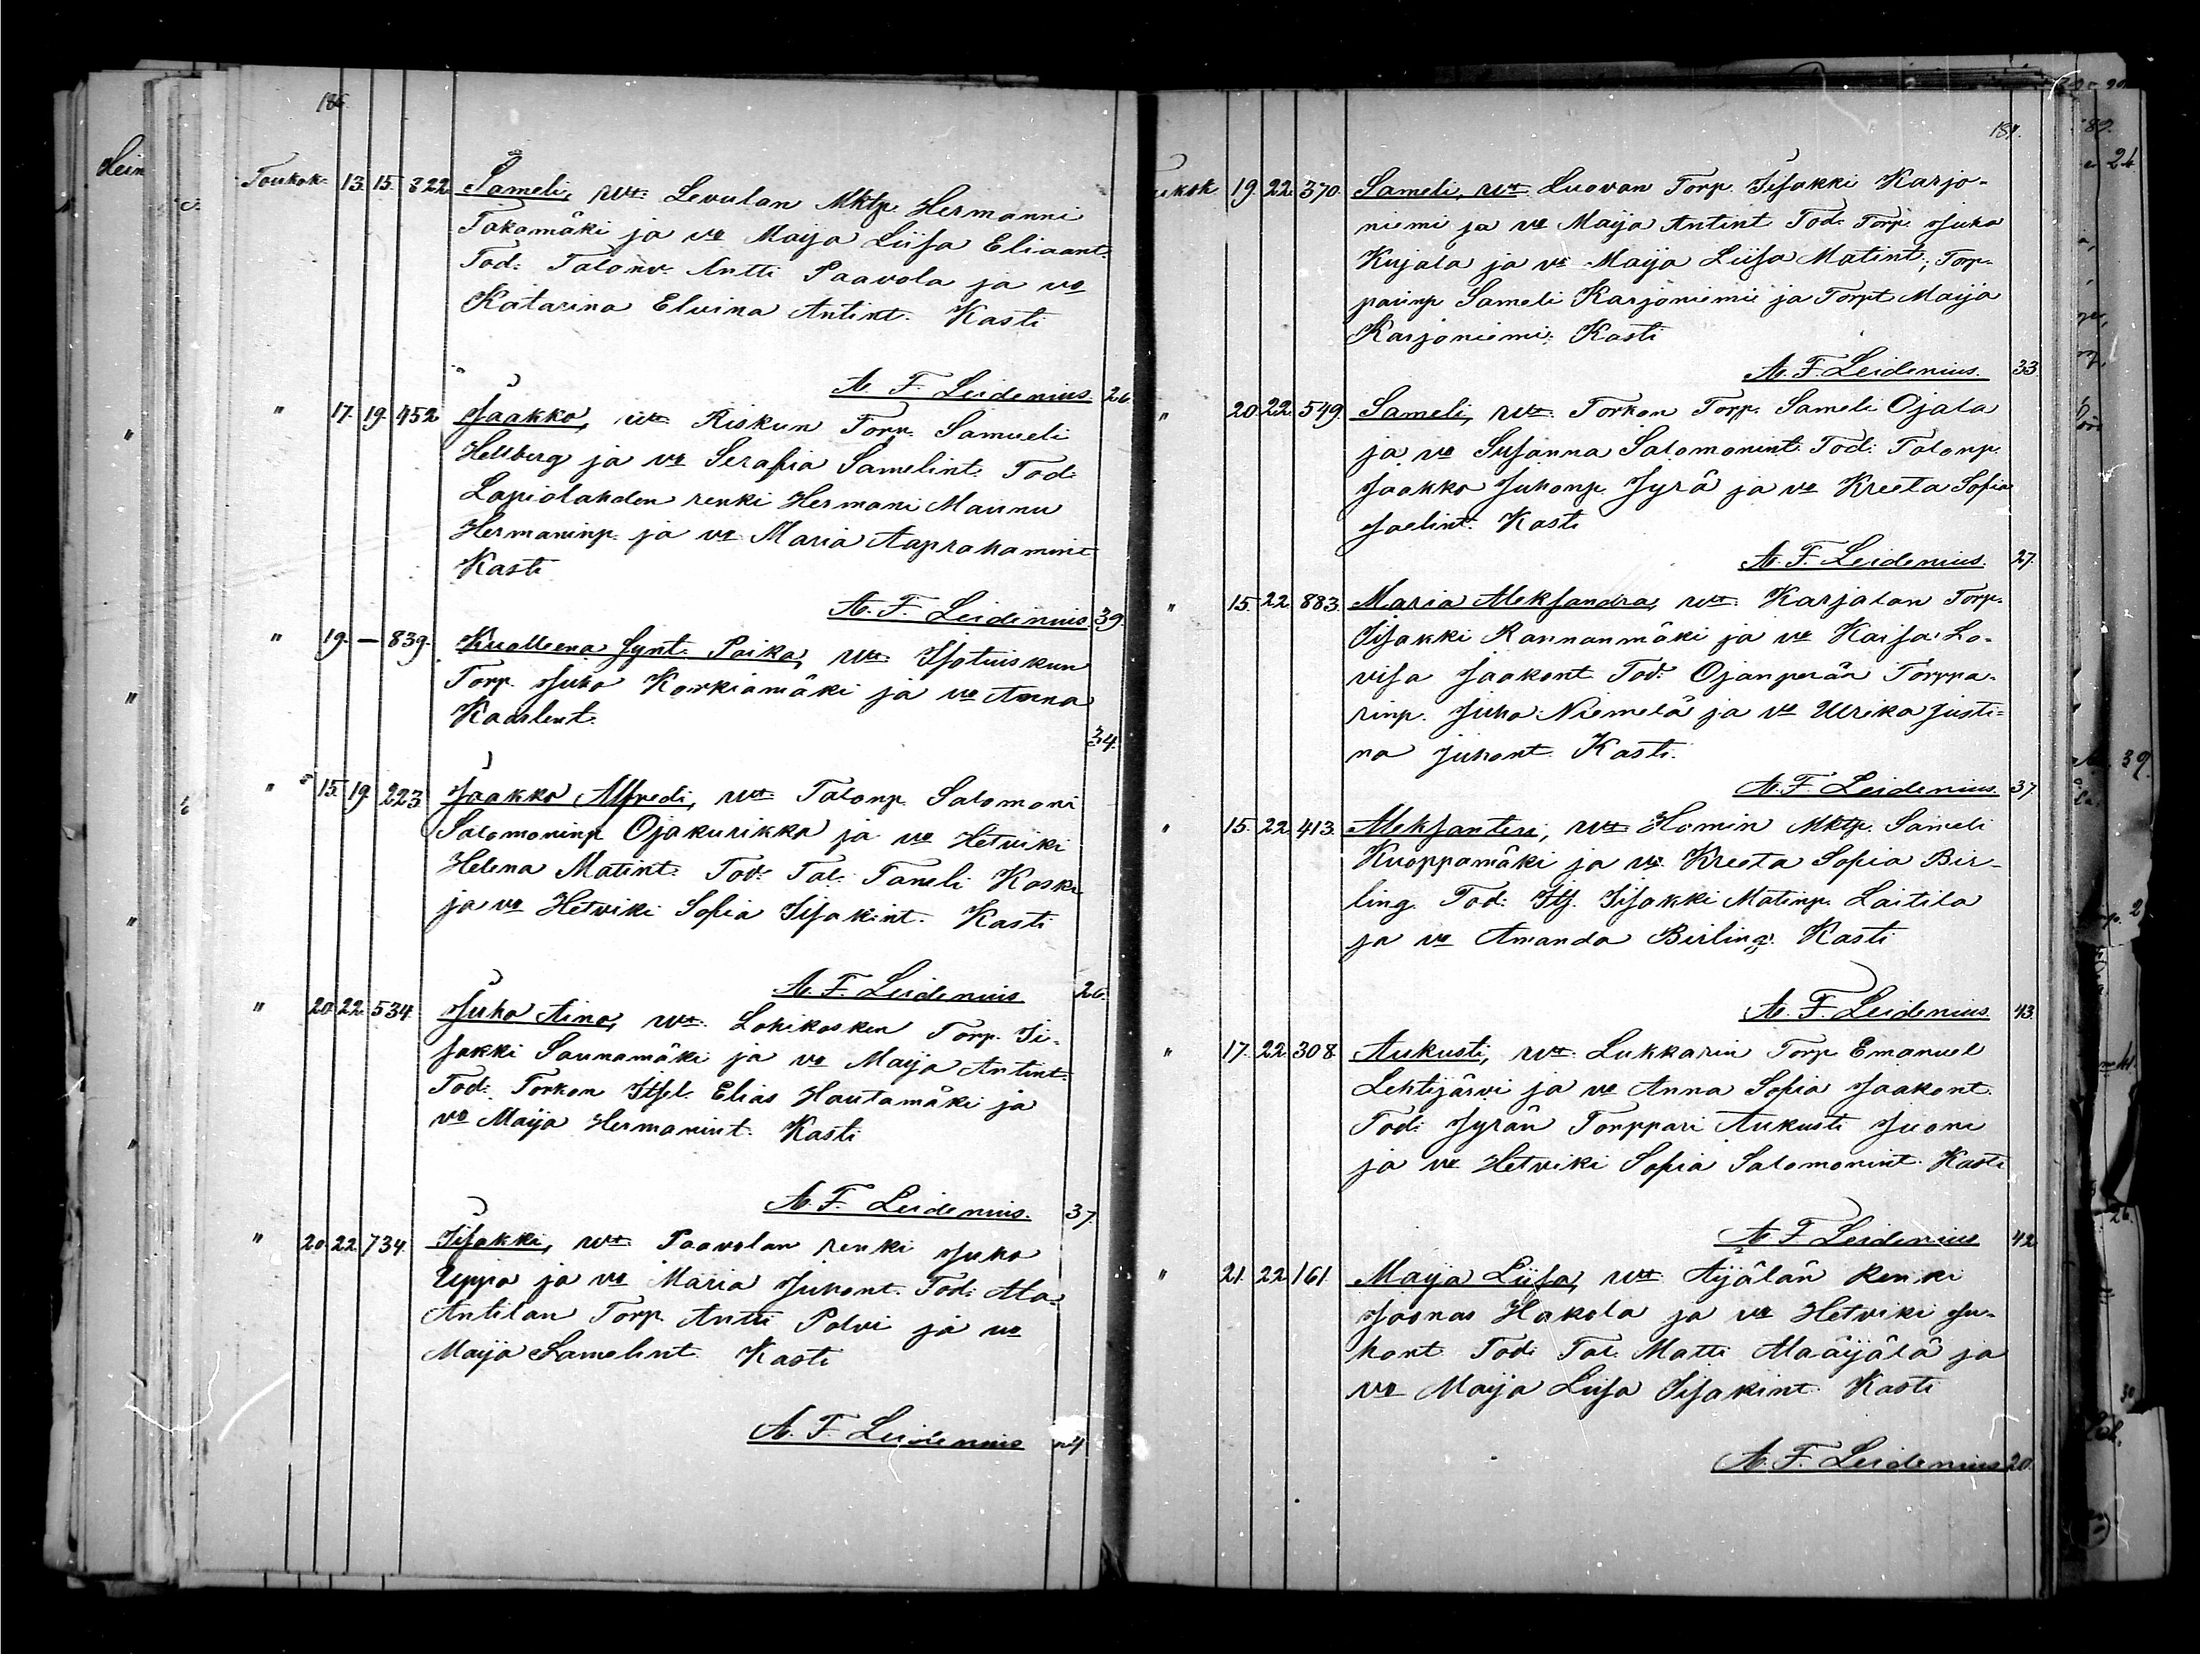 186.
Toukok. 13. 15. 822 Sameli, vht. Levulan Mktp. Hermanni
Takamäki ja vo Maija Liisa Eliaant.
Tod: Talonv. Antti Paavola ja vo
Katarina Elviina Antint. Kasti
A. F. Leidenius. 26.
" 17. 19. 452 Jaakko, vht. Riskun Torp. Samueli
Hellberg ja vo Serafia Samelint. Tod:
Lapiolahden renki Hermani Maunu
Hermaninp. ja vo Maria Aaprahamint
Kasti
A. F. Leidenius. 39.
" 19. — 839. Kuolleena synt. Poika, vht. Isotuiskun
Torp. Juho Korkiamäki ja vo Anna
Kaarlent.
34.
" 15. 19. 223 Jaakko Alfredi, vht. Talonp. Salomoni
Salomoninp. Ojakurikka ja vo Hetviki
Helena Matint. Tod: Tal. Taneli Koski
ja vo Hetviki Sofia Iisakint. Kasti
A. F. Leidenius 26.
" 20. 22. 534. Juho Aino, vht. Lohikosken Torp. Ii-
sakki Saunamäki ja vo Maija Antint.
Tod: Torkon Itsel. Elias Hautamäki ja
vo Maija Hermanint. Kasti
A. F. Leidenius. 37.
" 20. 22. 734. Iisakki, vht. Paavolan renki Juho
Uppa ja vo Maria Juhont. Tod: Ala-
Antilan Torp. Antti Polvi ja vo
Maija Samelint. Kasti
A. F. Leidenius
187.
ukok 19. 22. 370. Sameli, vht. Luovan Torp. Iisakki Karjo-
niemi ja vo Maija Antint. Tod: Torp. Juho
Kujala ja vo Maija Liisa Matint.; Torp-
parinp. Sameli Karjoniemi ja Torpt. Maija
Karjoniemi. Kasti
A. F. Leidenius. 33.
" 20. 22. 549. Sameli, vht. Torkon Torp. Sameli Ojala
ja vo Susanna Salomonint. Tod: Talonp.
Jaakko Juhonp. Jyrä ja vo Kreeta Sofia
Joelint. Kasti
A. F. Leidenius. 27.
" 15. 22. 883. Maria Aleksandra, vht. Karjalan Torp.
Iisakki Rannanmäki ja vo Kaisa Lo-
visa Jaakont. Tod: Ojanperän Torppa-
rinp. Juho Niemelä ja vo Ulrika Justi-
na Juhont. Kasti.
A. F. Leidenius. 37.
" 15. 22. 413. Aleksanteri, vht. Homin Mktp. Sameli
Kuoppamäki ja vo Kreeta Sofia Bir-
ling. Tod: Its. Iisakki Matinp. Laitila
ja vo Amanda Birling. Kasti
A. F. Leidenius. 43.
" 17. 22. 308. Aukusti, vht. Lukkarin Torp. Emanuel
Lehtijärvi ja vo Anna Sofia Jaakont.
Tod: Jyrän Torppari Aukusti Juoni
ja vo Hetviki Sofia Salomonint. Kasti
A. F. Leidenius 42.
" 21. 22. 161. Maija Liisa, vht. Äijälän Renki
Joonas Hakola ja vo Hetviki Ju-
hont. Tod: Tal. Matti Alaäijälä ja
vo Maija Liisa Iisakint. Kasti
A. F. Leidenius 20.